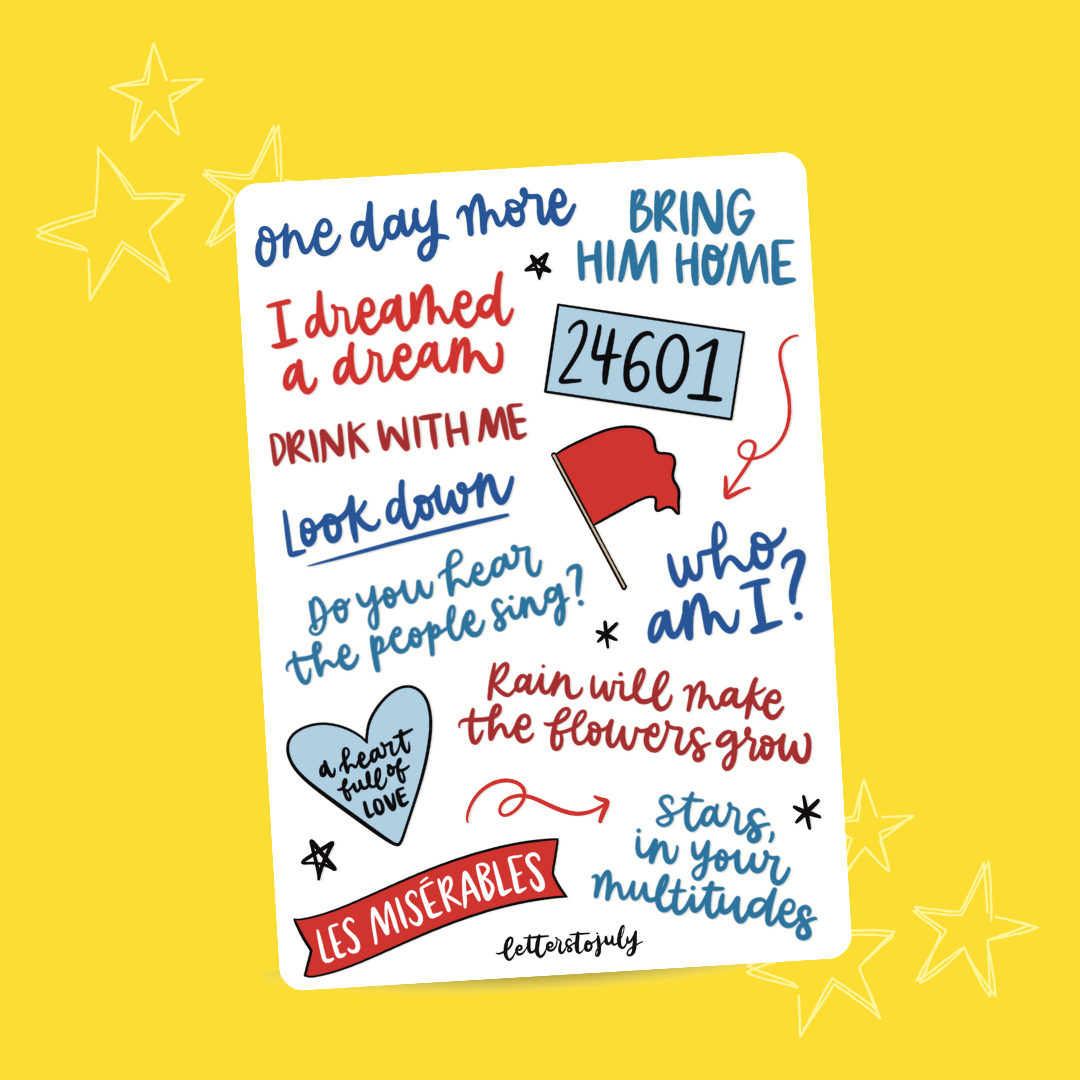 one day more
BRING
HIM HOME
I dreamed
a dream
24601
DRINK WITH ME
Look down
who
am I?
Do you hear
the people sing?
Rain will make
the flowers grow
a heart
full of
LOVE
stars,
in your
multitudes
LES MISÉRABLES
letterstojuly